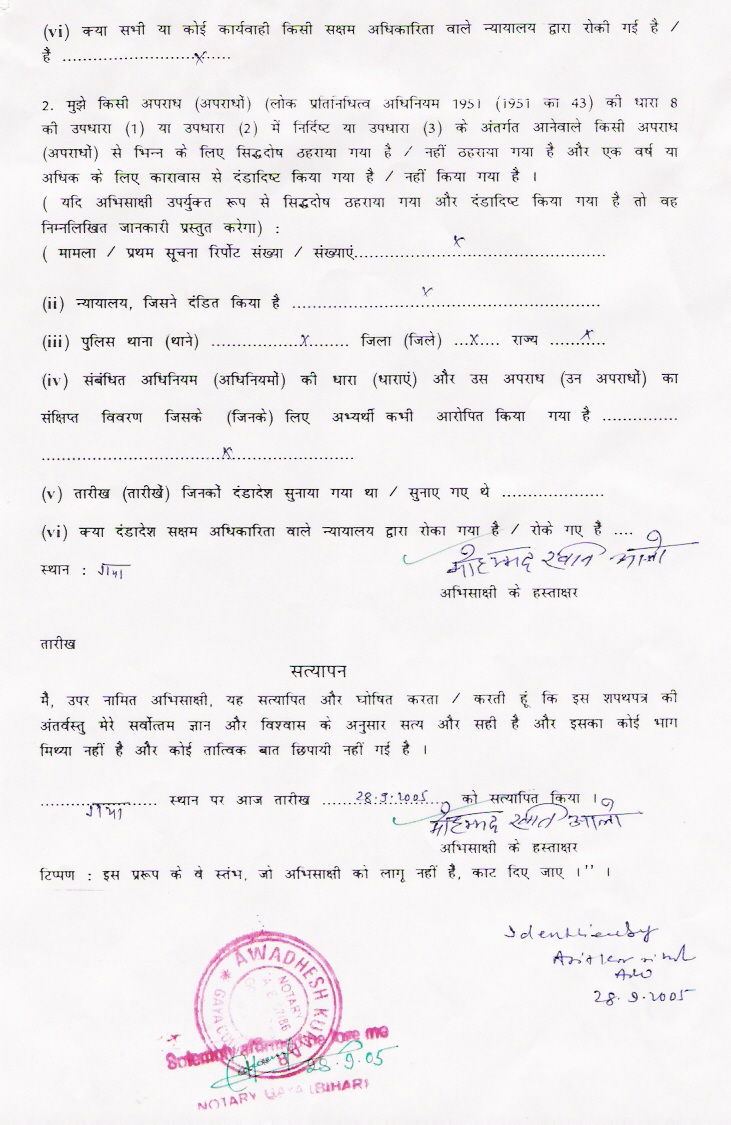 (vi) क्या सभी या कोई कार्यवाही किसी सक्षम अधिकारिता वाले न्यायालय द्वारा रोकी गई है /
है ...........................x......
2. मुझे किसी अपराध (अपराधों) (लोक प्रतिनिधित्व अधिनियम 1951 (1951 का 43) की धारा 8
की उपधारा (1) या उपधारा (2) में निर्दिष्ट या उपधारा (3) के अंतर्गत आनेवाले किसी अपराध
(अपराधों) से भिन्न के लिए सिद्धदोष ठहराया गया है / नहीं ठहराया गया है और एक वर्ष या
अधिक के लिए कारावास से दंडादिष्ट किया गया है / नहीं किया गया है ।
( यदि अभिसाक्षी उपर्युक्त रूप से सिद्धदोष ठहराया गया और दंडादिष्ट किया गया है तो वह
निम्नलिखित जानकारी प्रस्तुत करेगा) :
( मामला / प्रथम सूचना रिर्पोट संख्या / संख्याएं...................x........................
(ii) न्यायालय, जिसने दंडित किया है ........................x............................
(iii) पुलिस थाना (थाने) ..................x........ जिला (जिले) ...x.... राज्य ......x.....
(iv) संबंधित अधिनियम (अधिनियमों) की धारा (धाराएं) और उस अपराध (उन अपराधों) का
संक्षिप्त विवरण जिसके (जिनके) लिए अभ्यर्थी कभी आरोपित किया गया है ...............
....................................x........................
(v) तारीख (तारीखें) जिनकों दंडादेश सुनाया गया था / सुनाए गए थे .....................
(vi) क्या दंडादेश सक्षम अधिकारिता वाले न्यायालय द्वारा रोका गया है / रोके गए हैं ....
स्थान : गया
मोहम्मद
अभिसाक्षी के हस्ताक्षर
तारीख
सत्यापन
मै, उपर नामित अभिसाक्षी, यह सत्यापित और घोषित करता / करती हूं कि इस शपथपत्र की
अंतर्वस्तु मेरे सर्वोत्तम ज्ञान और विश्वास के अनुसार सत्य और सही है और इसका कोई भाग
मिथ्या नहीं है और कोई तात्विक बात छिपायी नहीं गई है ।
गया ........................ स्थान पर आज तारीख .......28.9.2005... को सत्यापित किया ।
मोहम्मद
अभिसाक्षी के हस्ताक्षर
टिप्पण : इस प्ररूप के वे स्तंभ, जो अभिसाक्षी को लागू नहीं है, काट दिए जाए ।'' ।
28.9.2005
AWADHESH KUMAR
NOTARY
Solemnly affirmed before me
28.9.05
NOTARY GAYA (BIHAR)